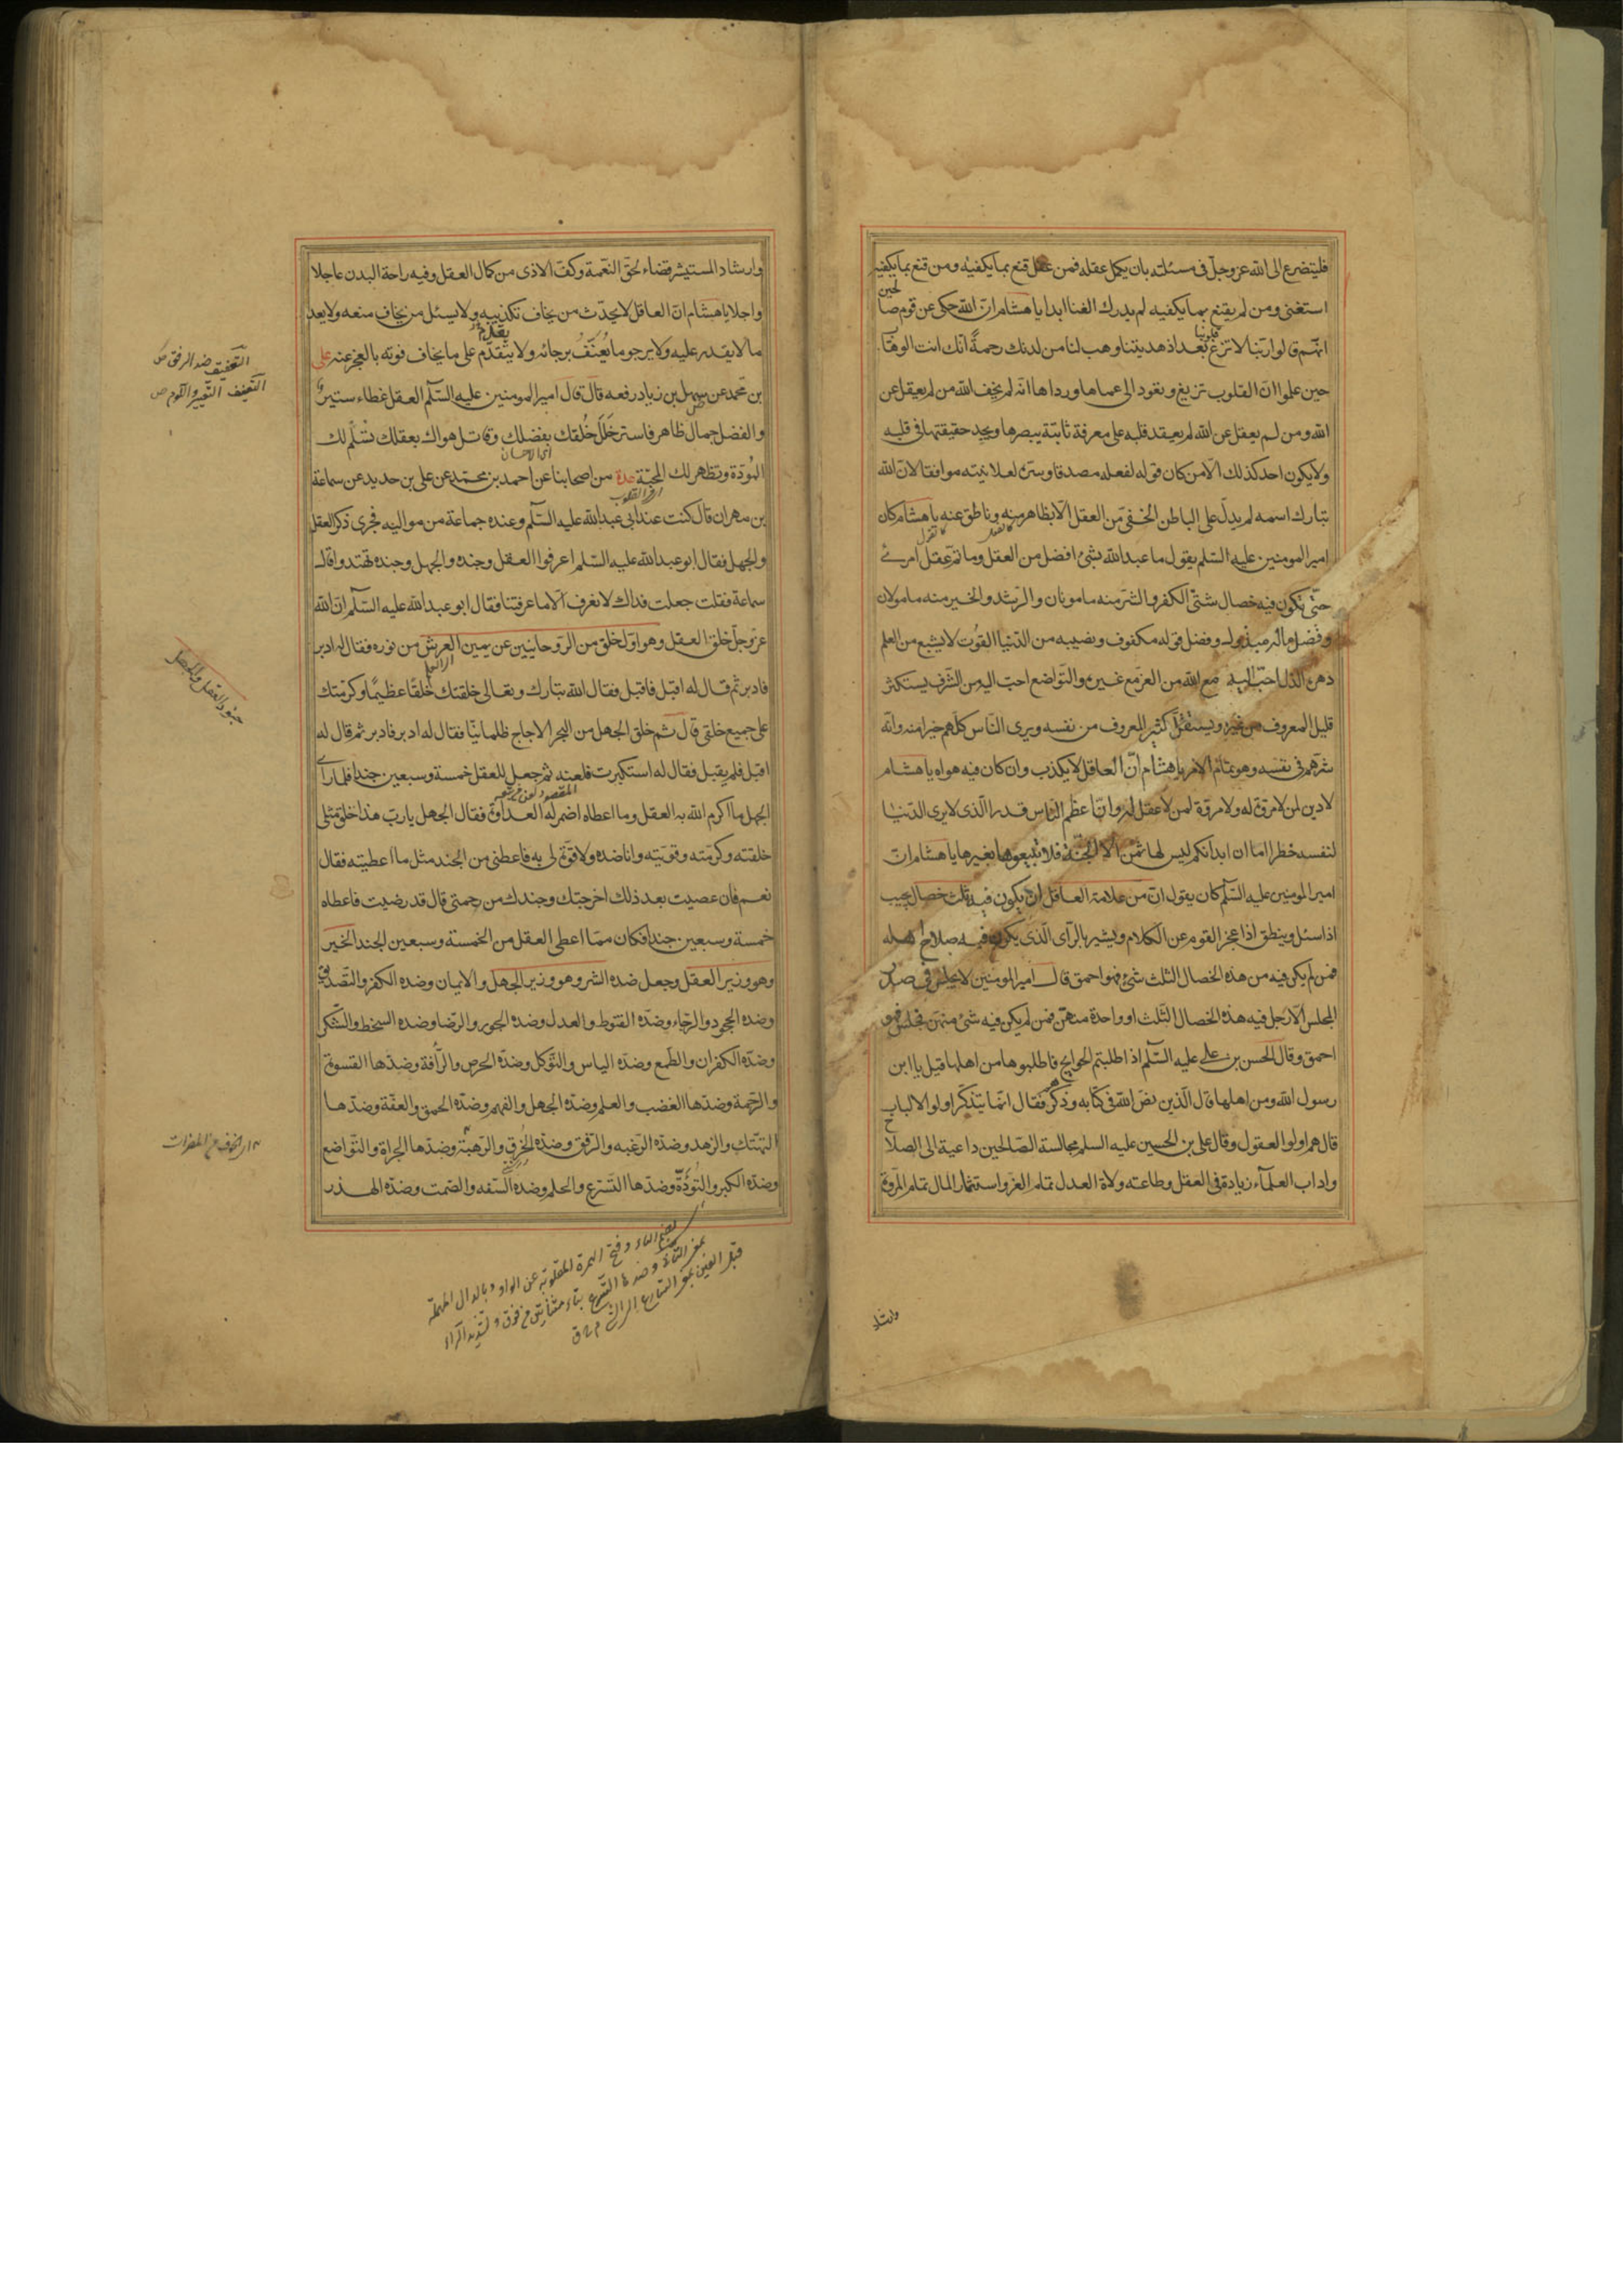 فليتضرع الى الله عز وجل فى مسئلته بان يكمل عقله فمن عقل قنع بما يكفيه ومن قنع بما يكفيه
استغنى ومن لم يقنع بما يكفيه لم يدرك الغنا ابدا يا هشام ان الله حكى عن قوم صالحين
انهم قالوا ربنا لا تزغ قلوبنا بعد اذ هديتنا وهب لنا من لدنك رحمة انك انت الوهاب
حين علموا ان القلوب تزيغ وتعود الى عماها ورداها انه لم يخف الله من لم يعقل عن
الله ومن لم يعقل عن الله لم يعقد قلبه على معرفة ثابتة يبصرها ويجد حقيقتها فى قلبه
ولا يكون احد كذلك الا من كان قوله لفعله مصدقا وسره لعلانيته موافقا لان الله
تبارك اسمه لم يدل على الباطن الخفى من العقل الا بظاهر منه وناطق عنه يا هشام كان
امير المومنين عليه السلم يقول ما عبد الله بشئ افضل من العقل وما تم عقل امرئ
حتى تكون فيه خصال شتى الكفر والشر منه مامونان والرشد والخير منه مامولان
وفضل ماله مبذول وفضل قوله مكفوف ونصيبه من الدنيا القوت لا يشبع من العلم
دهره الذل احب اليه مع الله من العز مع غيره والتواضع احب اليه من الشرف يستكثر
قليل المعروف من غيره ويستقل كثير المعروف من نفسه ويرى الناس كلهم خيرا منه وانه
شرهم فى نفسه وهو تمام الامر يا هشام ان العاقل لا يكذب وان كان فيه هواه يا هشام
لا دين لمن لا مروة له ولا مروة لمن لا عقل له وان اعظم الناس قدرا الذى لا يرى الدنيا
لنفسه خطرا اما ان ابدانكم ليس لها ثمن الا الجنة فلا تبيعوها بغيرها يا هشام ان
امير المومنين عليه السلم كان يقول ان من علامة العاقل ان يكون فيه ثلث خصال يجيب
اذا سئل وينطق اذا عجز القوم عن الكلام ويشير بالراى الذى يكون فيه صلاح اهله
فمن لم يكن فيه من هذه الخصال الثلث شئ فهو احمق قال امير المومنين لا يجلس فى صدر
المجلس الا رجل فيه هذه الخصال الثلث او واحدة منهن فمن لم يكن فيه شئ منهن فجلس فهو
احمق وقال الحسن بن على عليه السلم اذا طلبتم الحوايج فاطلبوها من اهلها قيل يا ابن
رسول الله ومن اهلها قال الذين نص الله فى كتابه وذكرهم فقال انما يتذكر اولوا الالباب
قال هم اولوا العقول وقال على بن الحسين عليه السلم مجالسة الصالحين داعية الى الصلاح
واداب العلمآء زيادة فى العقل وطاعته ولاة العدل تمام العز واستثمار المال تمام المروة
وارشاد
وارشاد المستيشر قضاء لحق النعمة وكف الاذى من كمال العقل وفيه راحة البدن عاجلا
واجلا يا هشام ان العاقل لا يحدث من يخاف تكذيبه ولا يسئل من يخاف منعه ولا يعد
ما لا يقدر عليه ولا يرجو ما يعنف برجائه ولا يتقدم على ما يخاف فوته بالعجز عنه على
بن محمد عن سهل بن زياد رفعه قال قال امير المومنين عليه السلم العقل غطاء ستير
والفضل جمال ظاهر فاستر خلل خلقك بفضلك وقاتل هواك بعقلك تسلم لك
المودة وتظهر لك المحبة عدة من اصحابنا عن احمد بن محمد عن على بن حديد عن سماعة
بن مهران قال كنت عند ابى عبد الله عليه السلم وعنده جماعة من مواليه فجرى ذكر العقل
والجهل فقال ابو عبد الله عليه السلم اعرفوا العقل وجنده والجهل وجنده تهتدوا قال
سماعة فقلت جعلت فداك لا نعرف الا ما عرفتنا فقال ابو عبد الله عليه السلم ان الله
عز وجل خلق العقل وهو اول خلق من الروحانيين عن يمين العرش من نوره فقال له ادبر
فادبر ثم قال له اقبل فاقبل فقال الله تبارك وتعالى خلقتك خلقا عظيما وكرمتك
على جميع خلقى قال ثم خلق الجهل من البحر الاجاج ظلمانيا فقال له ادبر فادبر ثم قال له
اقبل فلم يقبل فقال له استكبرت فلعنه ثم جعل للعقل خمسة وسبعين جندا فلما راى
الجهل ما اكرم الله به العقل وما اعطاه اضمر له العداوة فقال الجهل يا رب هذا خلق مثلى
خلقته وكرمته وقويته وانا ضده ولا قوة لى به فاعطنى من الجند مثل ما اعطيته فقال
نعم فان عصيت بعد ذلك اخرجتك وجندك من رحمتى قال قد رضيت فاعطاه
خمسة وسبعين جندا فكان مما اعطى العقل من الخمسة وسبعين الجند الخير
وهو وزير العقل وجعل ضده الشر وهو وزير الجهل والايمان وضده الكفر والتصديق
وضده الجحود والرجاء وضده القنوط والعدل وضده الجور والرضا وضده السخط والشكر
وضده الكفران والطمع وضده الياس والتوكل وضده الحرص والرأفة وضدها القسوة
والرحمة وضدها الغضب والعلم وضده الجهل والفهم وضده الحمق والعفة وضدها
التهتك والزهد وضده الرغبه والرفق وضده الخرق والرهبة وضدها الجراة والتواضع
وضده الكبر والتؤدة وضدها التسرع والحلم وضده السفه والصمت وضده الهذر
التعنيف ضد الرفق ص
التعنيف التعيير واللوم ص
جنود العقل والجهل
بضم التاء وفتح الهمزة المقلوبة عن الواو وبالدال المهملة